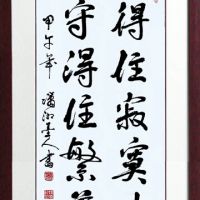 得住寂寞
守得住繁
甲午年 人書